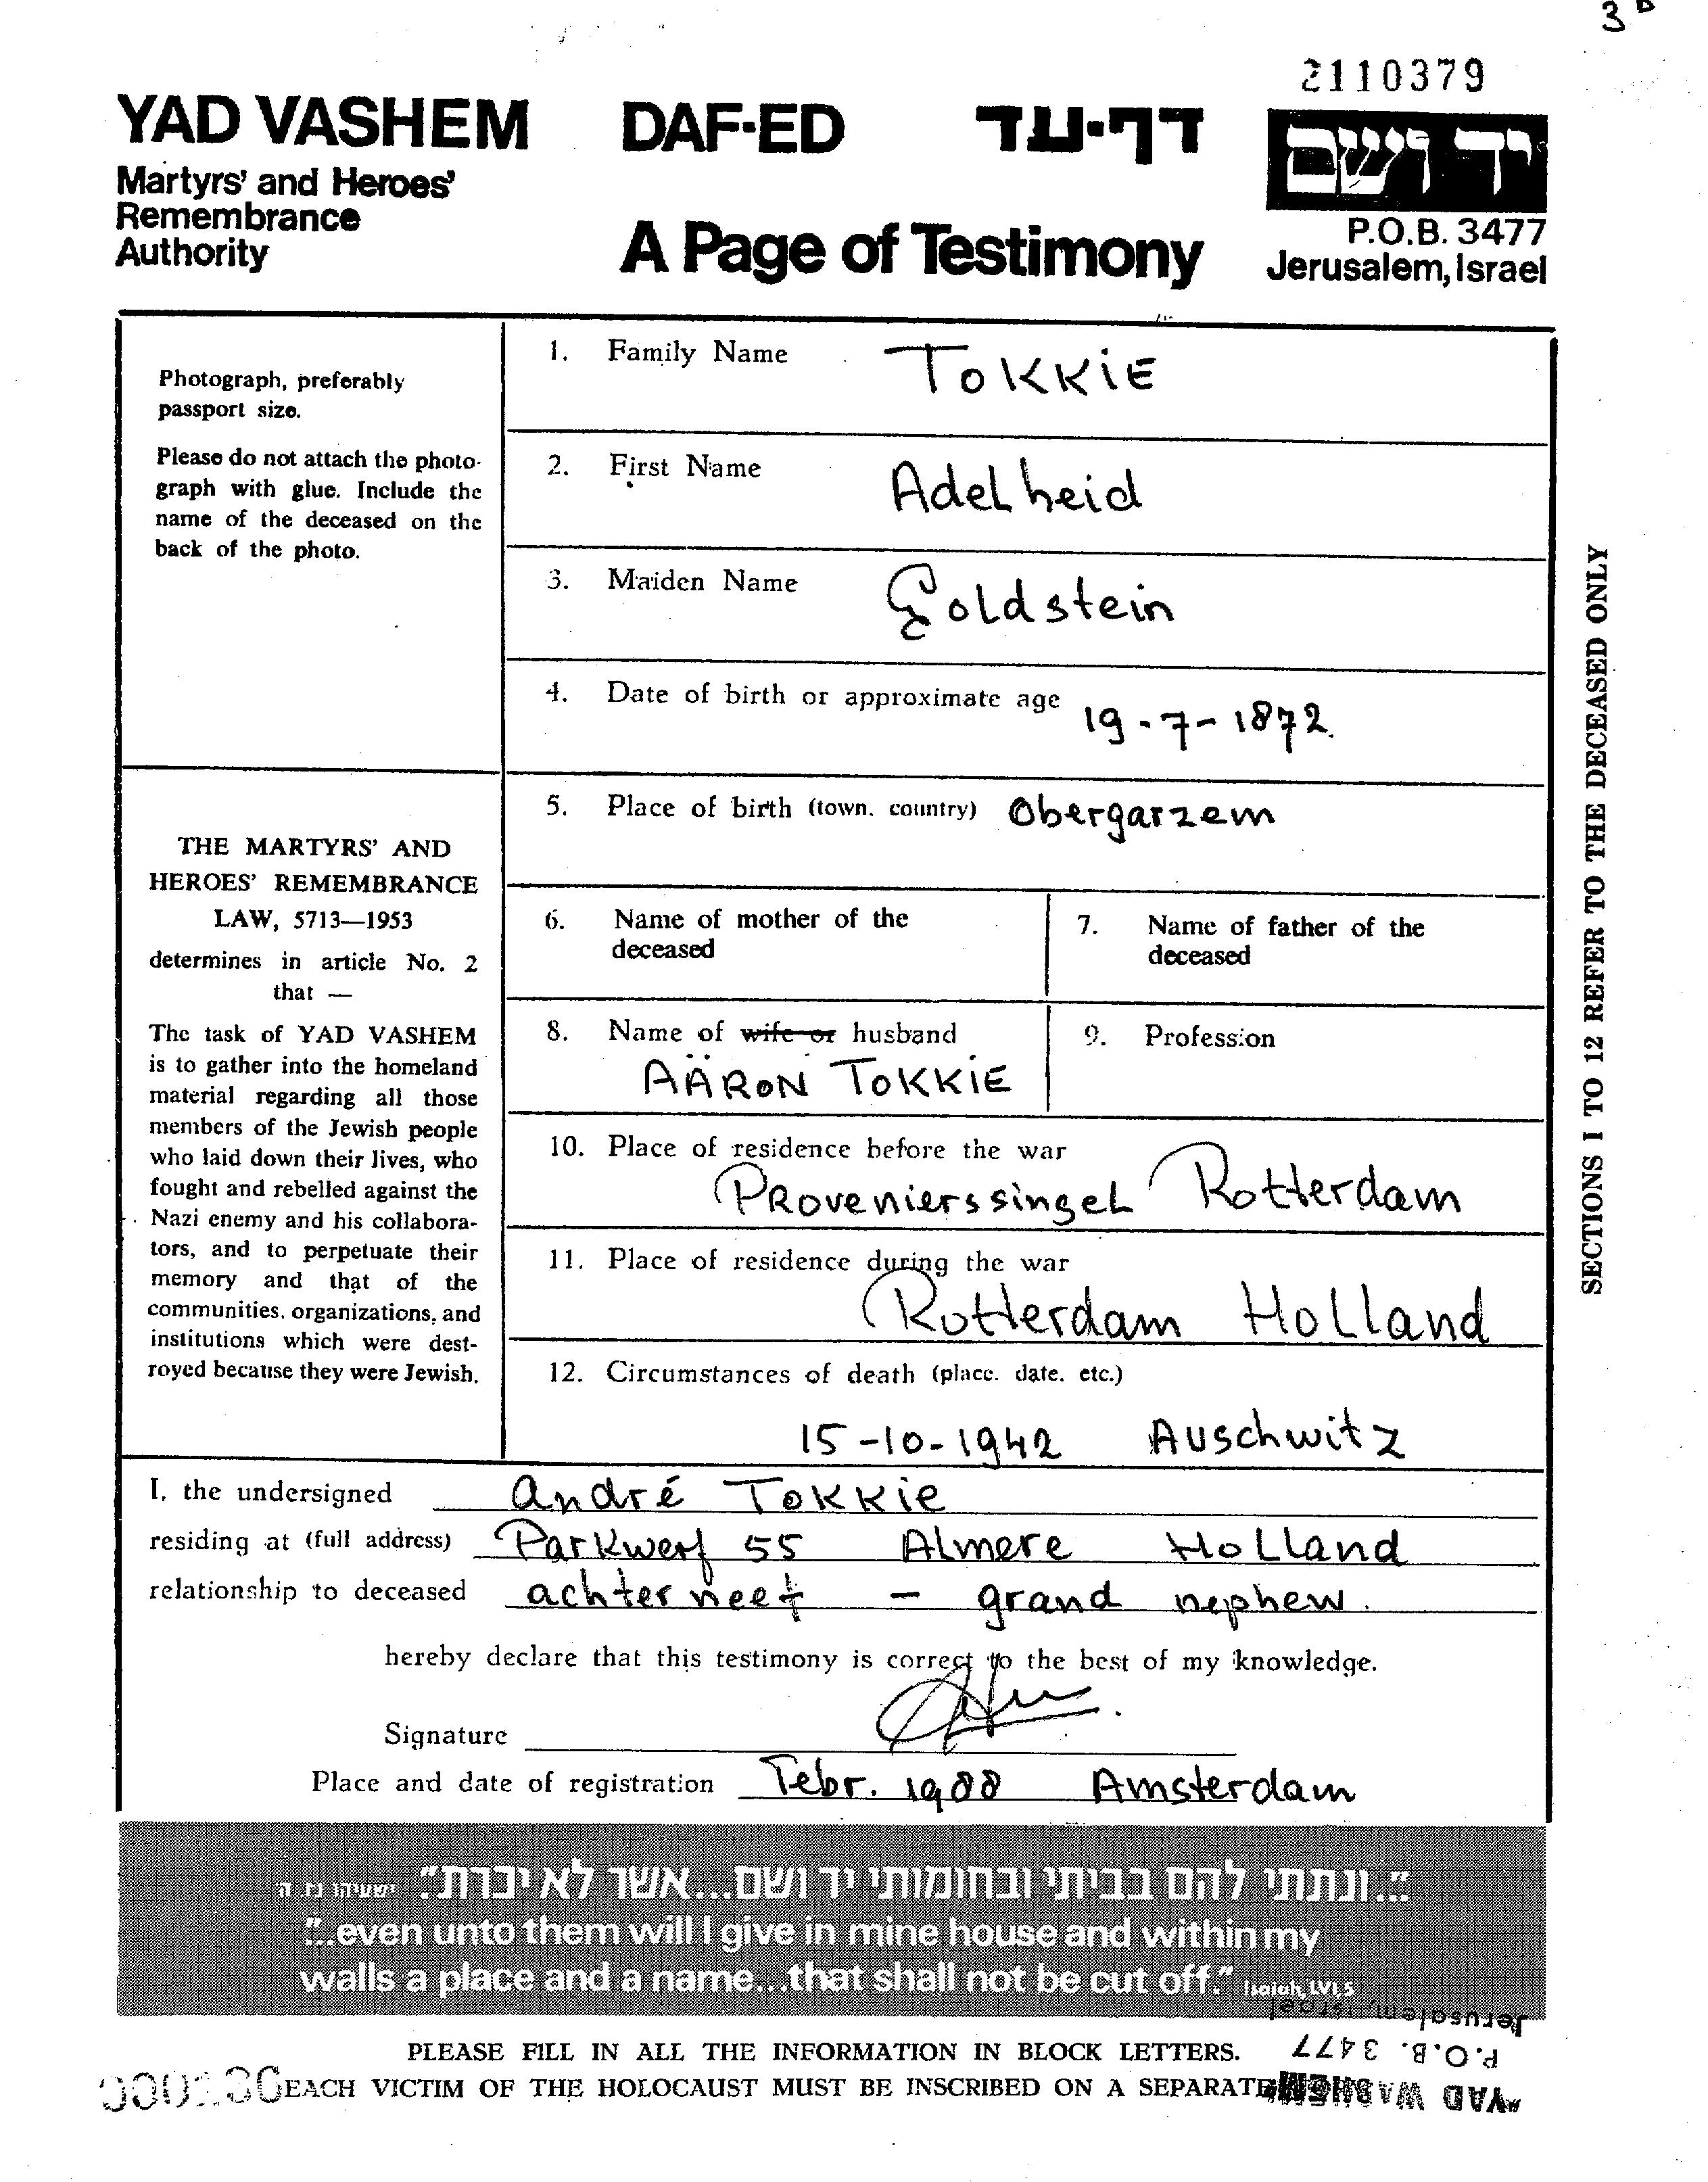 3 D
2110379
YAD VASHEM DAF-ED דף-עד יד ושם
Martyrs' and Heroes'
Remembrance
Authority
A Page of Testimony
P.O.B. 3477
Jerusalem, Israel
Photograph, preferably
passport size.
Please do not attach the photo-
graph with glue. Include the
name of the deceased on the
back of the photo.
THE MARTYRS' AND
HEROES' REMEMBRANCE
LAW, 5713—1953
determines in article No. 2
that —
The task of YAD VASHEM
is to gather into the homeland
material regarding all those
members of the Jewish people
who laid down their lives, who
fought and rebelled against the
Nazi enemy and his collabora-
tors, and to perpetuate their
memory and that of the
communities, organizations, and
institutions which were dest-
royed because they were Jewish.
1. Family Name TOKKiE
2. First Name Adelheid
3. Maiden Name Goldstein
4. Date of birth or approximate age 19-7-1872.
5. Place of birth (town, country) Obergarzem
6. Name of mother of the
deceased
7. Name of father of the
deceased
8. Name of wife or husband
AÄRON TOKKIE
9. Profession
10. Place of residence before the war
PRovenierssingel Rotterdam
11. Place of residence during the war
Rotterdam Holland
12. Circumstances of death (place, date, etc.)
15-10-1942 Auschwitz
SECTIONS 1 TO 12 REFER TO THE DECEASED ONLY
I, the undersigned andré Tokkie
residing at (full address) Parkwerf 55 Almere Holland
relationship to deceased achterneef - grand nephew.
hereby declare that this testimony is correct to the best of my knowledge.
Signature
Place and date of registration Febr. 1988 Amsterdam
"...ונתתי להם בביתי ובחומותי יד ושם...אשר לא יכרת." ישעיהו נו ה
"...even unto them will I give in mine house and within my
walls a place and a name...that shall not be cut off." Isaiah, LVI,5
Jerusalem, Israel
P.O.B. 3477
"YAD WASHEM"
PLEASE FILL IN ALL THE INFORMATION IN BLOCK LETTERS.
EACH VICTIM OF THE HOLOCAUST MUST BE INSCRIBED ON A SEPARATE